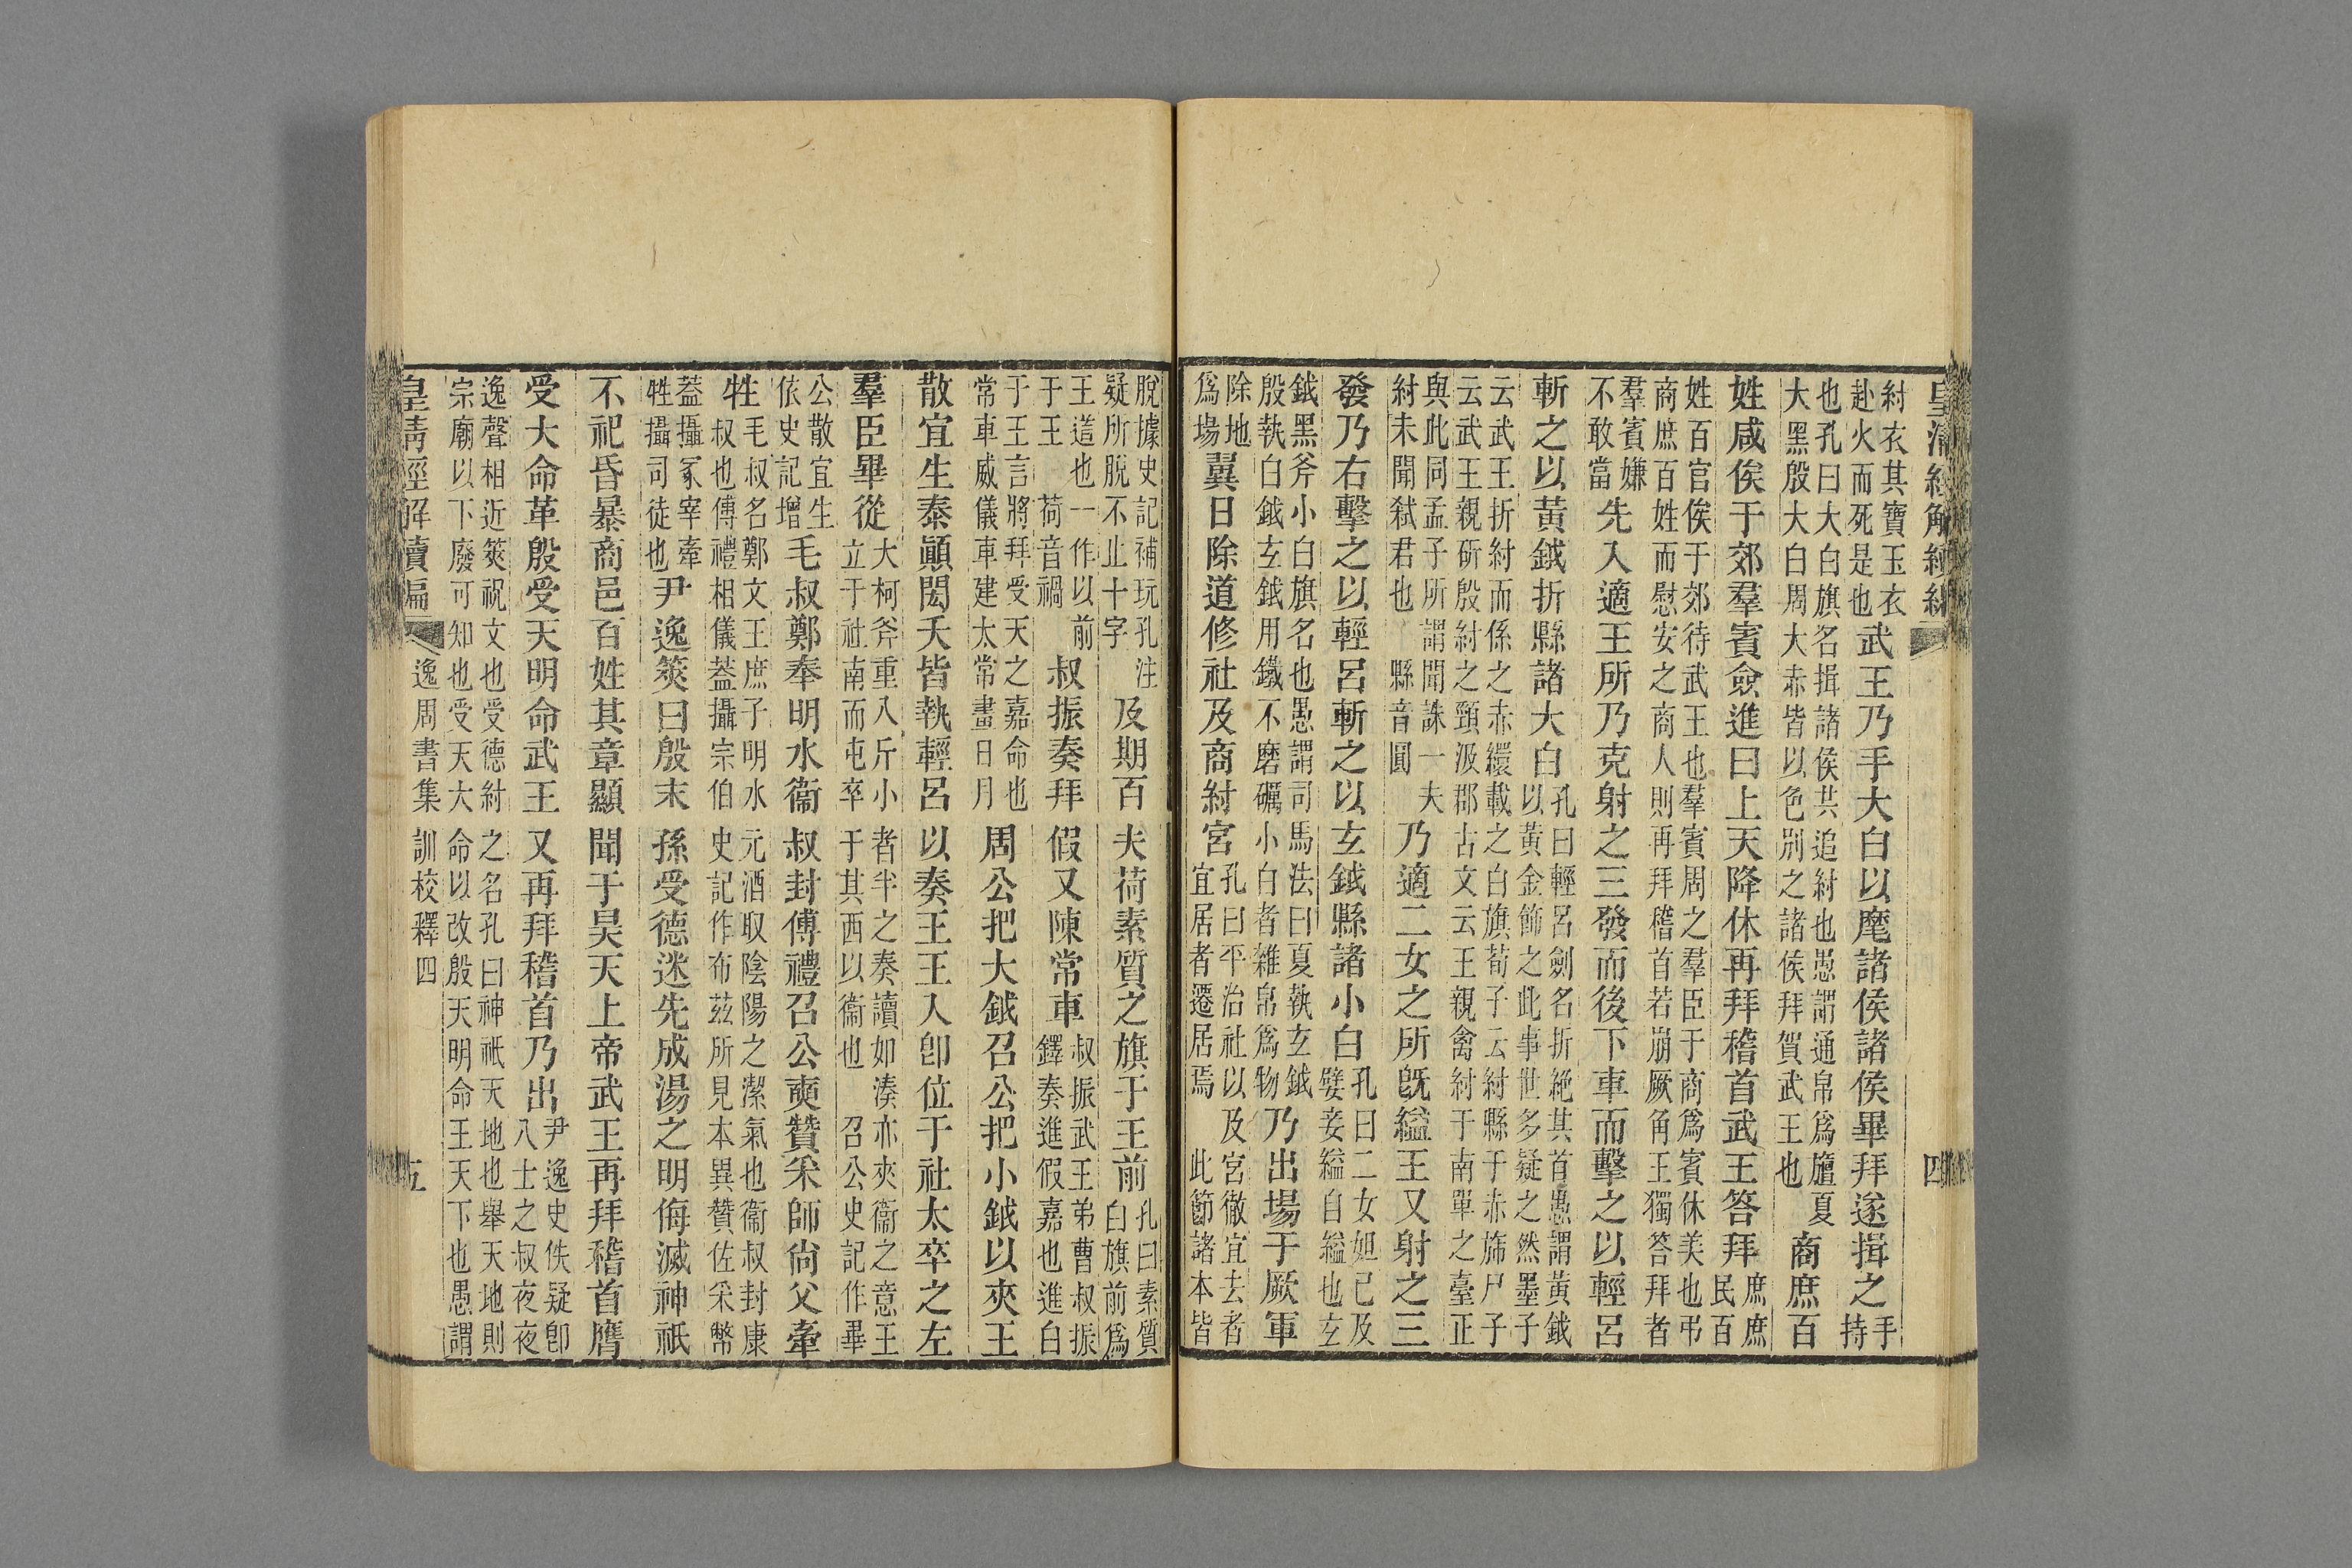 皇清經解續編
四
紂衣其寶玉衣
赴火而死是也武王乃手大白以麾諸侯諸侯畢拜遂揖之手
持
也孔曰大白旗名揖諸侯共追紂也愚謂通帛爲旜夏
大黑殷大白周大赤皆以色別之諸侯拜賀武王也商庶百
姓咸俟于郊羣賓僉進曰上天降休再拜稽首武王答拜庶庶
民百
姓百官俟于郊待武王也羣賓周之羣臣于商爲賓休美也弔
商庶百姓而慰安之商人則再拜稽首若崩厥角王獨答拜者
羣賓嫌
不敢當先入適王所乃克射之三發而後下車而擊之以輕呂
斬之以黃鉞折縣諸大白孔曰輕呂劍名折絶其首愚謂黃鉞
以黃金飾之此事世多疑之然墨子
云武王折紂而係之赤繯載之白旗荀子云紂縣于赤旆尸子
云武王親斫殷紂之頸汲郡古文云王親禽紂于南單之臺正
與此同孟子所謂聞誅一夫
紂未聞弒君也 縣音圓乃適二女之所旣縊王又射之三
發乃右擊之以輕呂斬之以玄鉞縣諸小白孔曰二女妲己及
嬖妾縊自縊也玄
鉞黑斧小白旗名也愚謂司馬法曰夏執玄鉞
殷執白鉞玄鉞用鐵不磨礪小白者雜帛爲物乃出場于厥軍
除地
爲場翼日除道修社及商紂宮孔曰平治社以及宮徹宜去者
宜居者遷居焉 此節諸本皆
脫據史記補玩孔注
疑所脫不止十字及期百夫荷素質之旗于王前孔曰素質
白旗前爲
王道也一作以前
于王 荷音禍叔振奏拜假又陳常車叔振武王弟曹叔振
鐸奏進假嘉也進白
于王言將拜受天之嘉命也
常車威儀車建太常畫日月周公把大鉞召公把小鉞以夾王
散宜生泰顚閎夭皆執輕呂以奏王王入卽位于社太卒之左
羣臣畢從大柯斧重八斤小者半之奏讀如湊亦夾衞之意王
立于社南而屯卒于其西以衞也 召公史記作畢
公散宜生
依史記增毛叔鄭奉明水衞叔封傅禮召公奭贊采師尙父牽
牲毛叔名鄭文王庶子明水元酒取陰陽之潔氣也衞叔封康
叔也傅禮相儀葢攝宗伯史記作布茲所見本異贊佐采幣
葢攝冢宰牽
牲攝司徒也尹逸筴曰殷末孫受德迷先成湯之明侮滅神祇
不祀昏暴商邑百姓其章顯聞于昊天上帝武王再拜稽首膺
受大命革殷受天明命武王又再拜稽首乃出尹逸史佚疑卽
八士之叔夜夜
逸聲相近筴祝文也受德紂之名孔曰神祇天地也舉天地則
宗廟以下廢可知也受天大命以改殷天明命王天下也愚謂
皇清經解續編
逸周書集訓校釋四
五